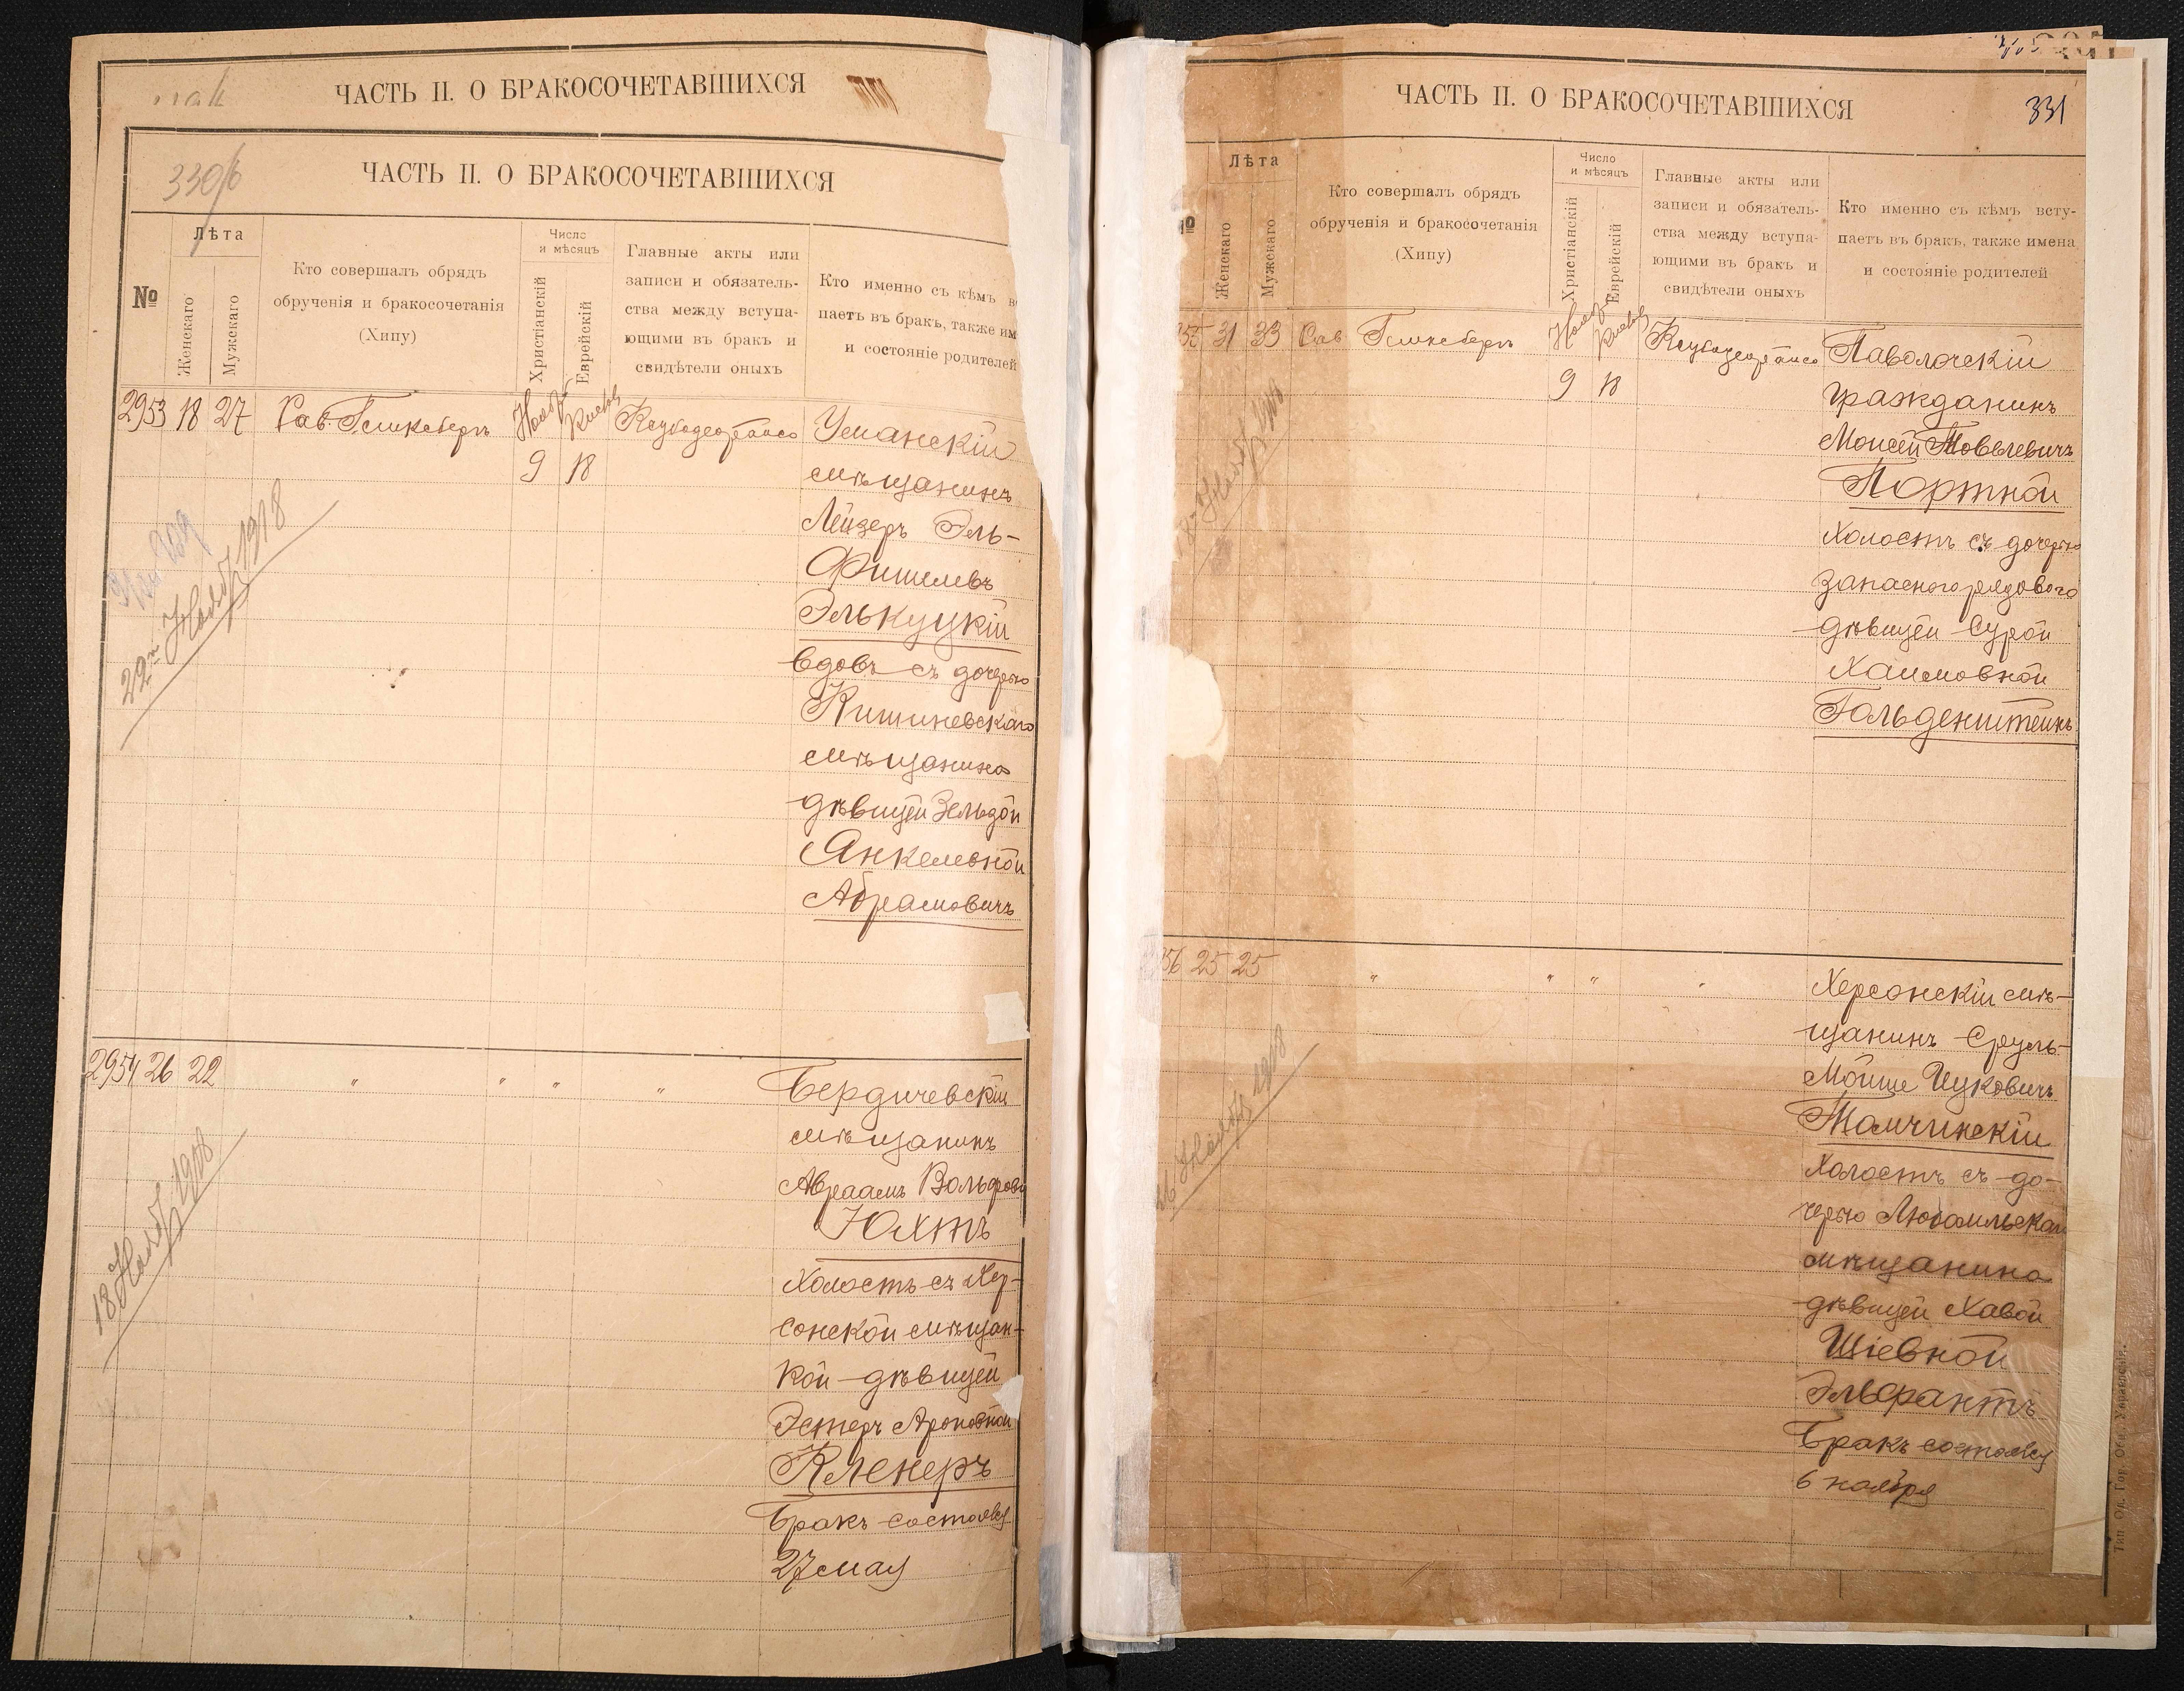 ЧАСТЬ II. О БРАКОСОЧЕТАВШИХСЯ
330/б
ЧАСТЬ II. О БРАКОСОЧЕТАВШИХСЯ
№
Лѣта
Женскаго
Мужскаго
Кто совершалъ обрядъ
обрученія и бракосочетанія
(Хипу)
Число
и мѣсяцъ
Христіанскій
Еврейскій
Главные акты или
записи и обязатель-
ства между вступа-
ющими въ бракъ и
свидѣтели оныхъ
Кто именно съ кѣмъ
паетъ въ бракъ, также
и состояніе родителей
2953 18 27 Рав.
9 18
Уманскій
мѣщанинъ
Лейзеръ Эль-
Фишелевъ
Элькуцкій
вдовъ съ дочерью
Кишиневскаго
мѣщанина
дѣвицей Зельдой
Янкелевной
Абрамовичъ
2954 26 22 " " " "
Бердичевскій
мѣщанинъ
Авраамъ
Юхтъ
Холостъ съ Хер-
сонской мѣщан-
кой дѣвицей
Эстеръ Ароновной
Кленеръ
Бракъ состоялся
27 мая
ЧАСТЬ II. О БРАКОСОЧЕТАВШИХСЯ
331
Лѣта
Женскаго
Мужскаго
Кто совершалъ обрядъ
обрученія и бракосочетанія
(Хипу)
Число
и мѣсяцъ
Христіанскій
Еврейскій
Главные акты или
записи и обязатель-
ства между вступа-
ющими въ бракъ и
свидѣтели оныхъ
Кто именно съ кѣмъ всту-
паетъ въ бракъ, также имена
и состояніе родителей
31 33
9 18
Паволочскій
гражданинъ
Моисей
Портной
Холостъ съ дочерью
запаснаго рядового
дѣвицей Сурой
Хаимовной
Гольденштейнъ
25 25 " " " "
Херсонскій мѣ-
щанинъ Сруль-
Мойше Ицковичъ
Талчинскій
Холостъ съ до-
черью
мѣщанина
дѣвицей Хавой
Шіевной
Эльфантъ
Бракъ состоялся
6 ноября